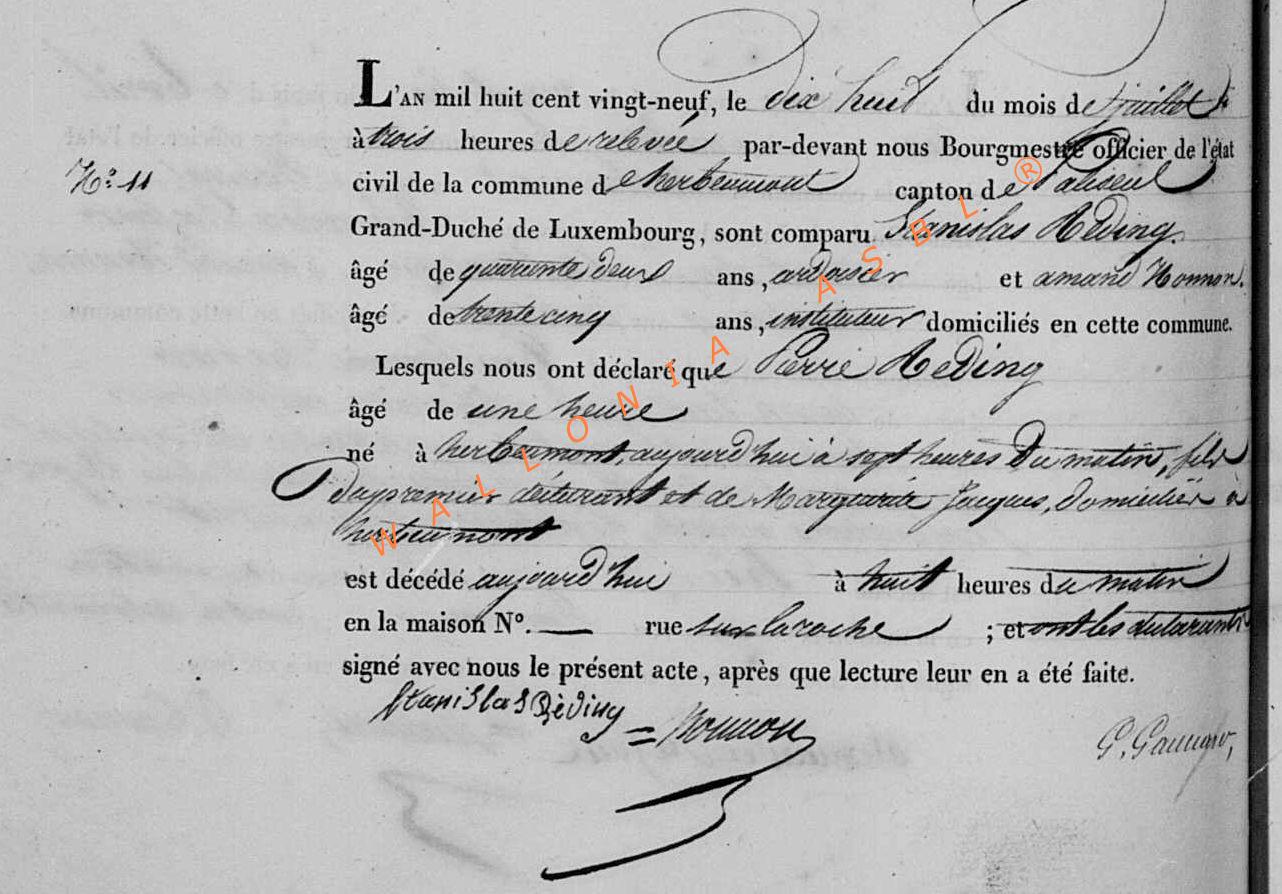 L'AN mil huit cent vingt-neuf, le dix huit du mois de juillet
à trois heures de relevée par-devant nous Bourgmestre officier de l'état
N.º 11 civil de la commune d'herbeumont canton de Paliseul
Grand-Duché de Luxembourg, sont comparu Stanislas Reding.
âgé de quarante deux ans, ardoisier et amand Honnon.
âgé de trente cinq ans, instituteur domiciliés en cette commune.
Lesquels nous ont déclaré que Pierre Reding
âgé de une heure
né à herbeumont, aujourd'hui à sept heures du matin, fils
du premier déclarant et de Marguerite Jacques, domiciliés à
herbeumont
est décédé aujourd'hui à huit heures du matin
en la maison Nº. — rue sur laroche ; et ont les déclarants
signé avec nous le présent acte, après que lecture leur en a été faite.
Stanislas Rèding = Honnon
WALLONIA ASBL ®